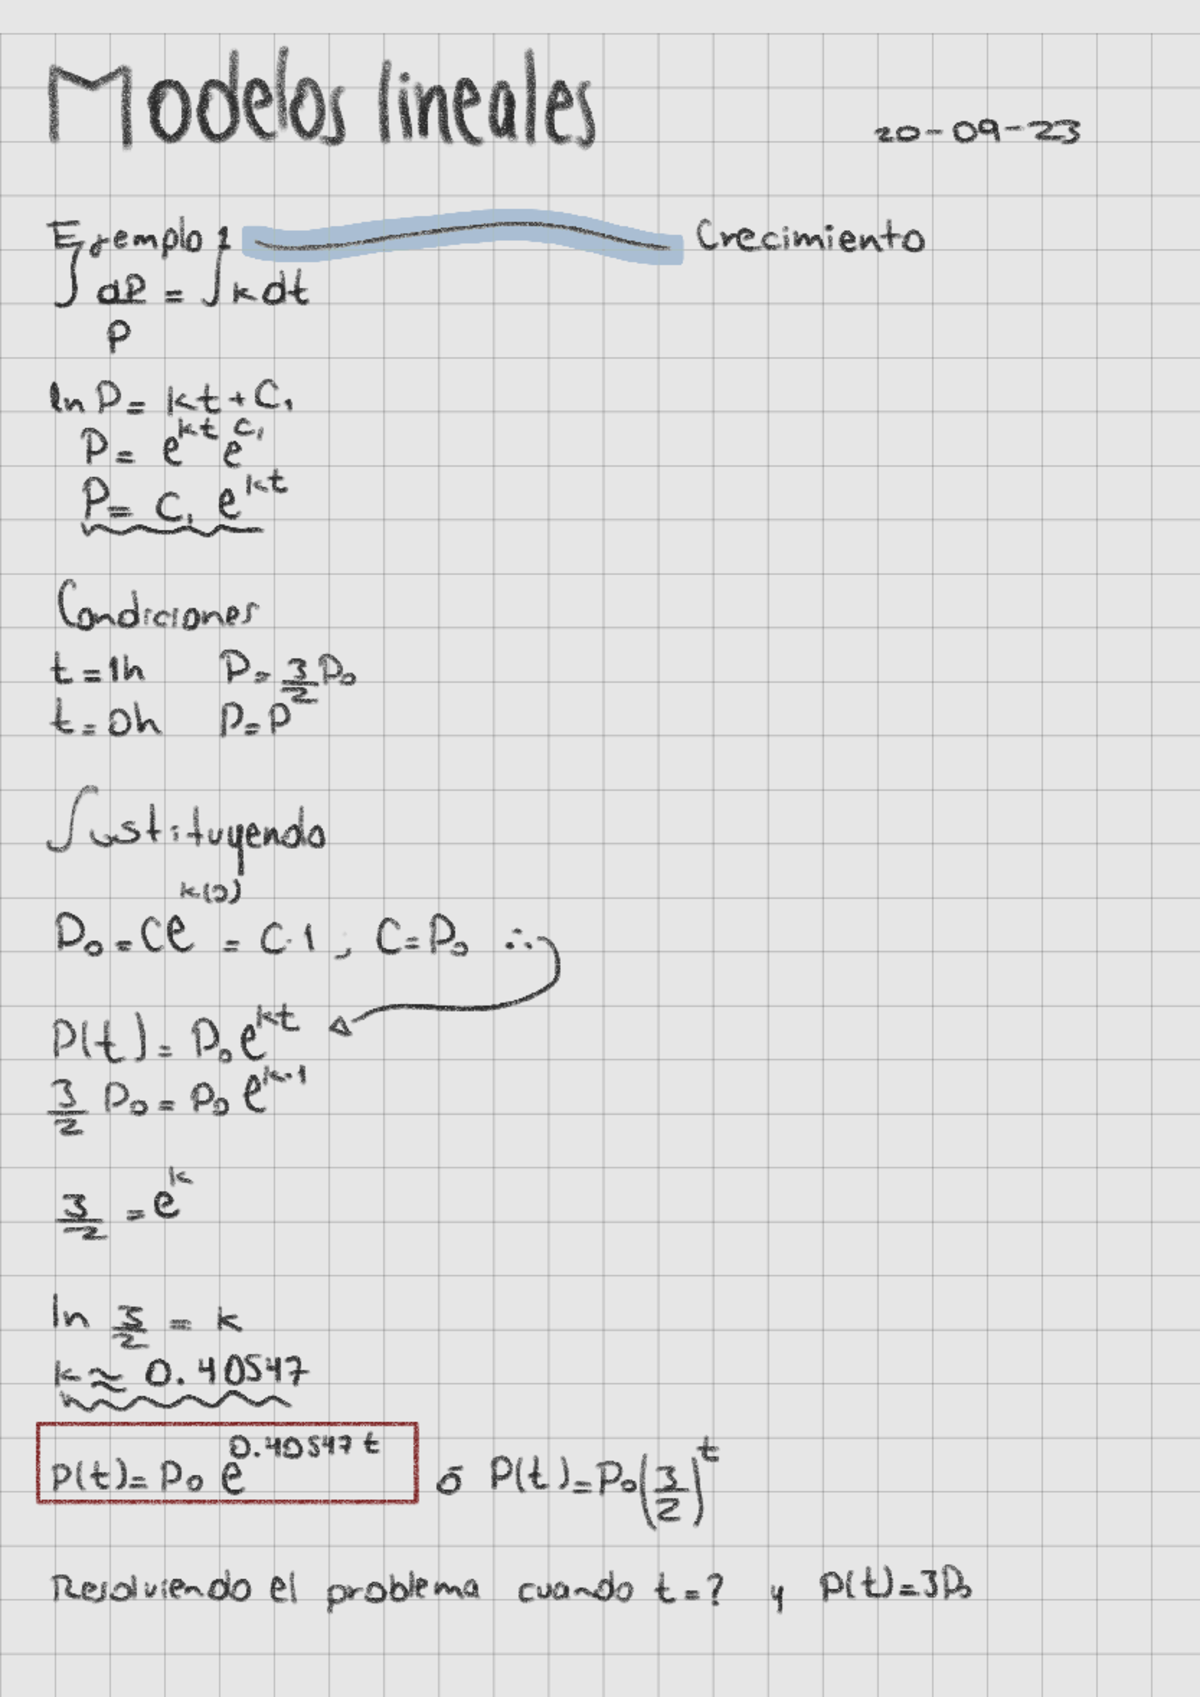 Modelos lineales
20-09-23
Ejemplo 1 Crecimiento
∫ dP/P = ∫ k dt
ln P = kt + C₁
P = e^{kt} e^{C₁}
P = C₁ e^{kt}
Condiciones
t = 1h P = 3/2 P₀
t = 0h P = P
Sustituyendo
P₀ = Ce^{k(0)} = C·1 , C = P₀ ∴
P(t) = P₀ e^{kt}
3/2 P₀ = P₀ e^{k·1}
3/2 = e^k
ln 3/2 = k
k ≈ 0.40547
P(t) = P₀ e^{0.40547 t} ó P(t) = P₀ (3/2)^t
Resolviendo el problema cuando t = ? y P(t) = 3P₀